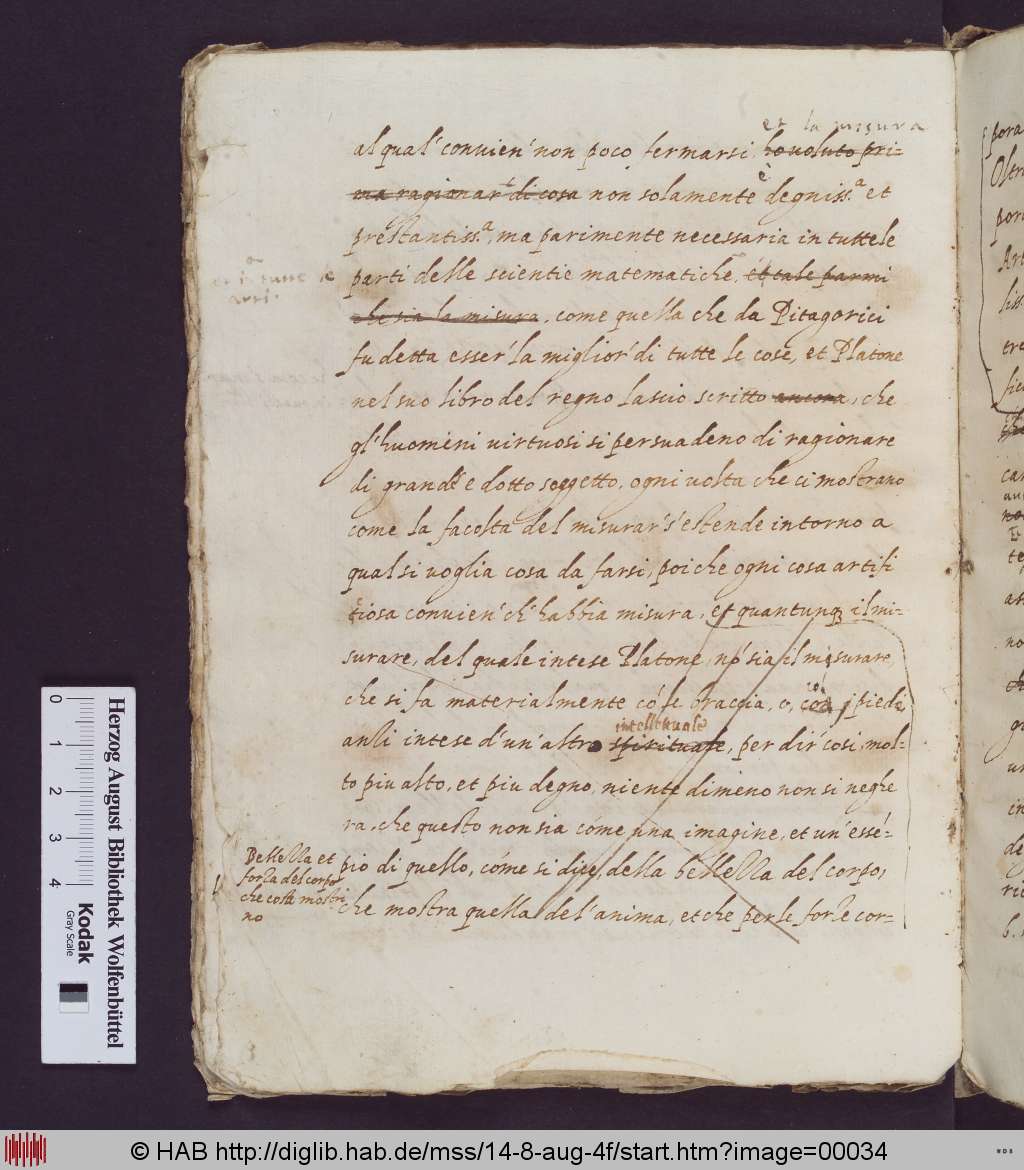 et la misura
al qual' convien' non poco fermarsi, ho voluto pri-
è
ma ragionar' di cosa non solamente degniss.ᵃ et
prestantiss.ᵃ, ma parimente necessaria in tutte le
parti delle scientie matematiche, et tale parmi
che sia la misura, come quella che da Pitagorici
fu detta esser' la miglior' di tutte le cose, et Platone
nel suo libro del regno lascio scritto ancora, che
gl'huomini virtuosi si persuadeno di ragionare
di grande e dotto soggetto, ogni volta che ci mostrano
come la facolta del misurar' s'estende intorno a
qual si voglia cosa da farsi, poiche ogni cosa artifi
tiosa convien' ch'habbia misura, et quantunq. il mi-
surare, del quale intese Platone, nō sia il misurare,
che si fa materialmente cō le braccia, o, coi piedi,
intellettuale
anzi intese d'un' altro spirituale, per dir' cosi, mol-
to piu alto, et piu degno, niente dimeno non si neghe
ra, che questo non sia cóme una imagine, et un' essé-
pio di quello, cóme si dice della bellezza del corpo,
che mostra quella del'anima, et che per le forze cor-
Bellezza et
forza del corpo
che cosa mostri
no
Herzog August Bibliothek Wolfenbüttel
Kodak
Gray Scale
0
1
2
3
4
© HAB http://diglib.hab.de/mss/14-8-aug-4f/start.htm?image=00034